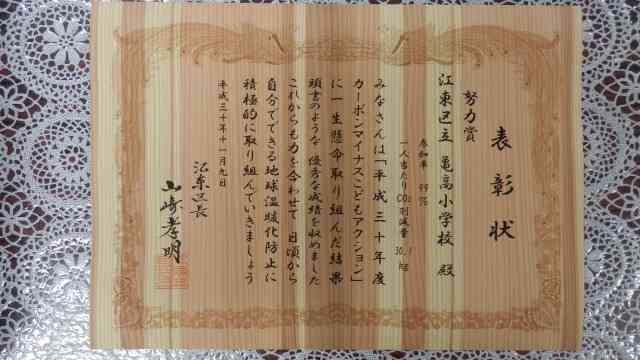 表彰状
努力賞
江東区立 亀高小学校 殿
参加率 99%
一人当たりCO2削減量 30.1kg
みなさんは「平成三十年度
カーボンマイナスこどもアクション」
に一生懸命取り組んだ結果
頭書のような優秀な成績を収めました
これからも力を合わせて 日頃から
自分でできる地球温暖化防止に
積極的に取り組んでいきましょう
平成三十年十一月九日
江東区長
山﨑孝明